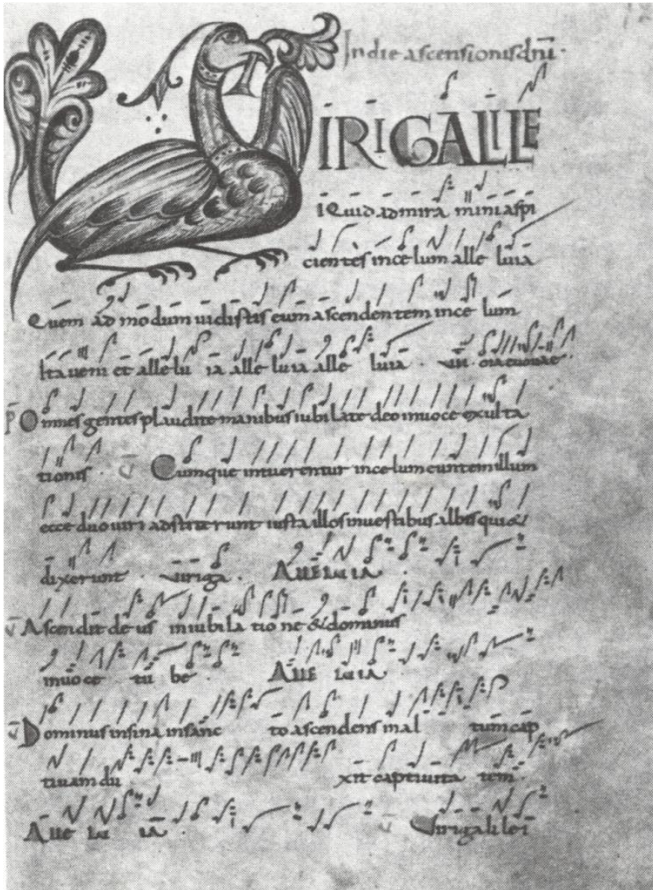 In die ascensionis dnī.
IRI GALILE
I Quid admira mini aspi
cientes in ce lum alle luia
Quem ad modum uidistis eum ascendentem in ce lum
Ita veni et alle lu ia alle luia alle luia
P Omnes gentes plaudite manibus iubilate deo in uoce exulta
tionis V Cumque intuerentur in ce lum euntem illum
ecce duo uiri adstiterunt iuxta illos in uestibus albis qui &
dixerunt uiri ga Alleluia
V Ascendit de us in iubila tio ne & dominus
in uo ce tu be Alle luia
V Dominus in sina in sanc to ascendens in al tum cap
tiuam du xit captiuita tem
Alle lu ia Viri galilei